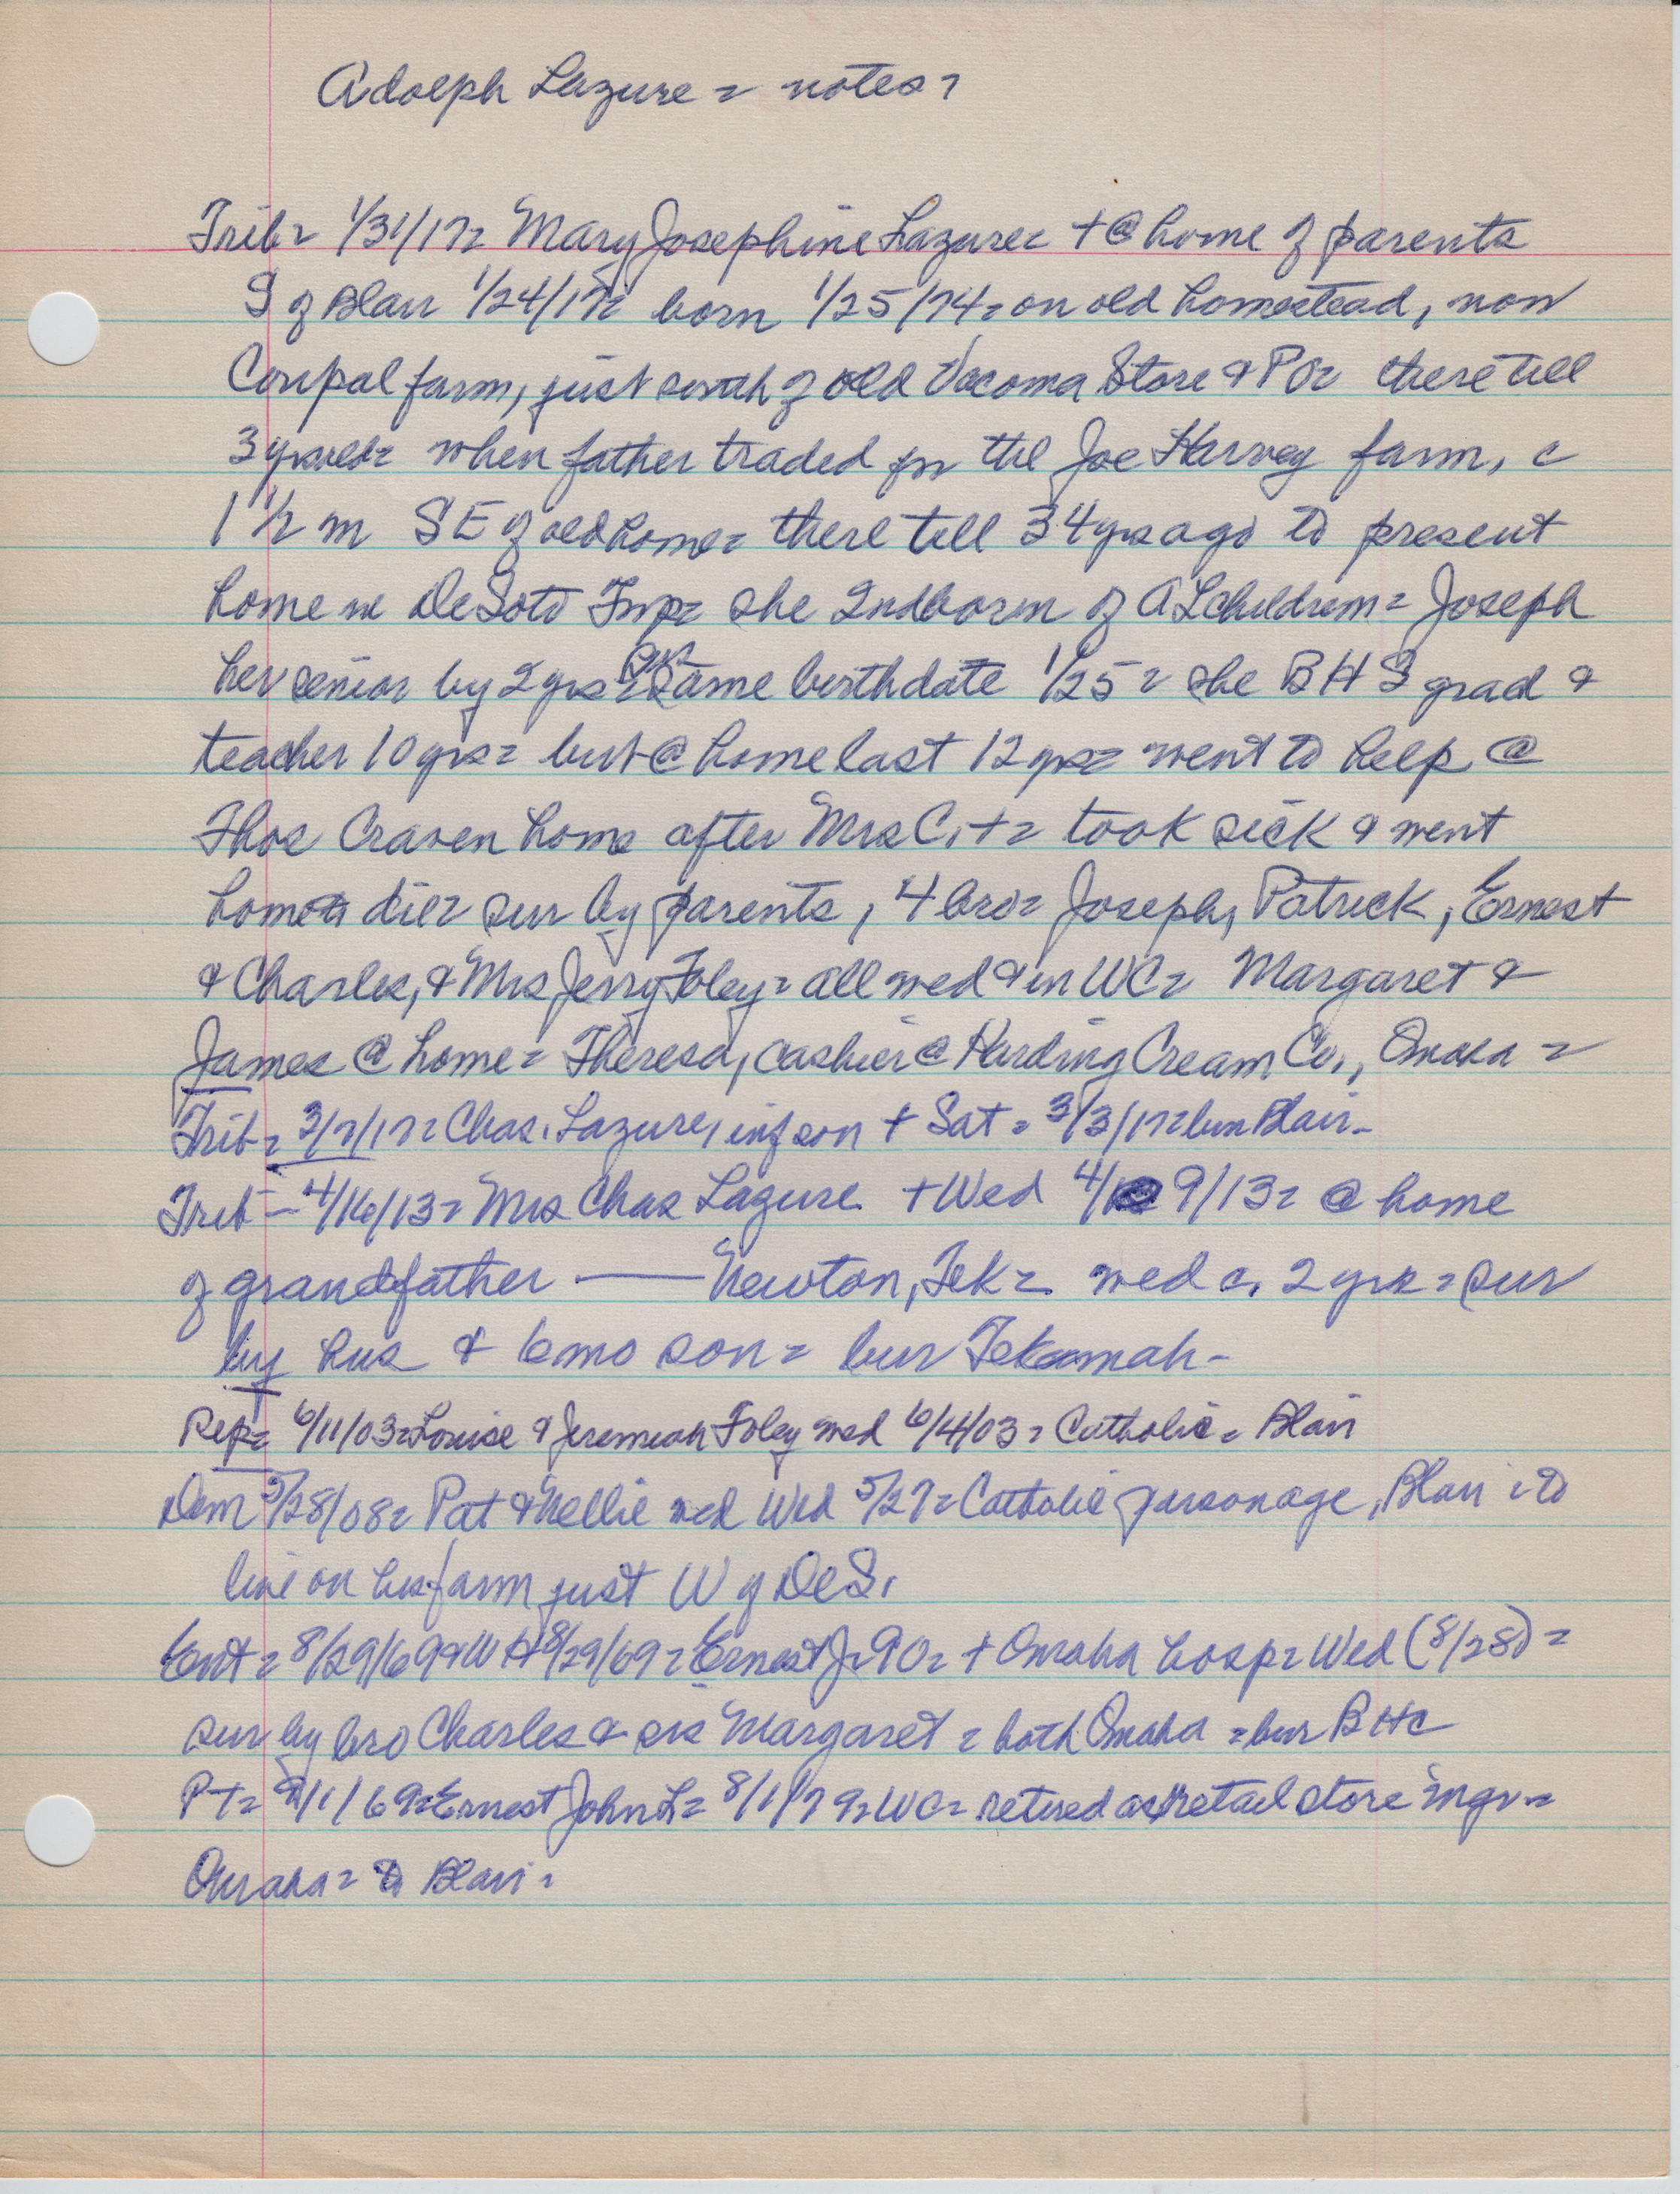 Adolph Lazure = notes =
Trib = 1/31/17 = Mary Josephine Lazure = + @ home of parents
S of Blair 1/24/17 = born 1/25/74 = on old homestead, now
Coupal farm, just south of old Vacoma Store & PO = there till
3 yrs old = when father traded for the Joe Harvey farm, c
1 1/2 m SE of old home = there till 34 yrs ago to present
home in DeSoto Twp = she 2nd born of AL children = Joseph
her senior by 2 yrs = same birthdate 1/25 = she BHS grad &
teacher 10 yrs = but @ home last 12 yrs = went to help @
Thos Craven home after Mrs C. + = took sick & went
home to die = sur by parents, 4 bro = Joseph, Patrick, Ernest
& Charles, & Mrs Jerry Foley = all med & in WC = Margaret &
James @ home = Theresa, cashier @ Harding Cream Co., Omaha =
Trib = 3/7/17 = Chas. Lazure, inf son + Sat = 3/3/17 = bur Blair -
Trib - 4/16/13 = Mrs Chas Lazure + Wed 4/9/13 = @ home
of grandfather —— Newton, Tek = med c. 2 yrs = sur
by hus & 6 mo son = bur Tekamah -
Rep = 6/11/03 = Louise & Jeremiah Foley med 6/4/03 = Catholic = Blair
Dem 5/28/08 = Pat & Nellie med Wed 5/27 = Catholic parsonage, Blair = to
live on his farm just W of DeS.
Ent = 8/29/69 & WH 8/29/69 = Ernest J = 90 = + Omaha hosp = Wed (8/28) =
sur by bro Charles & sis Margaret = both Omaha = bur BHC
PT = 9/1/69 = Ernest John L = 8/1/79 = WC = retired as retail store mgr =
Omaha = to Blair =